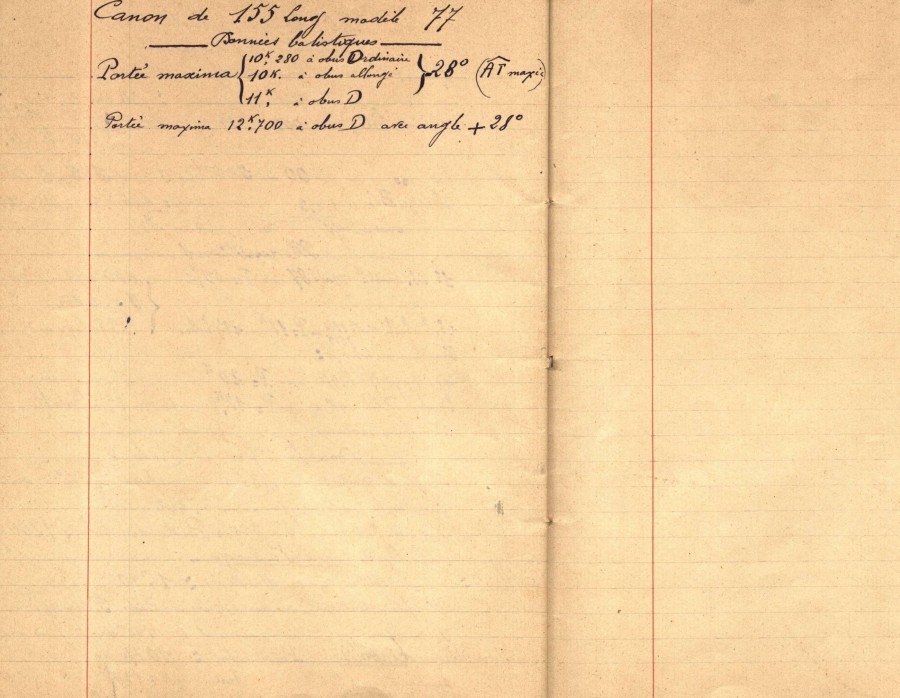 Canon de 155 Long modèle 77
Données balistiques
Portée maxima { 10K,280 à obus Ordinaire
10K. à obus allongé } 28° (AT maxi)
11K, à obus D
Portée maxima 12K,700 à obus D avec angle + 28°